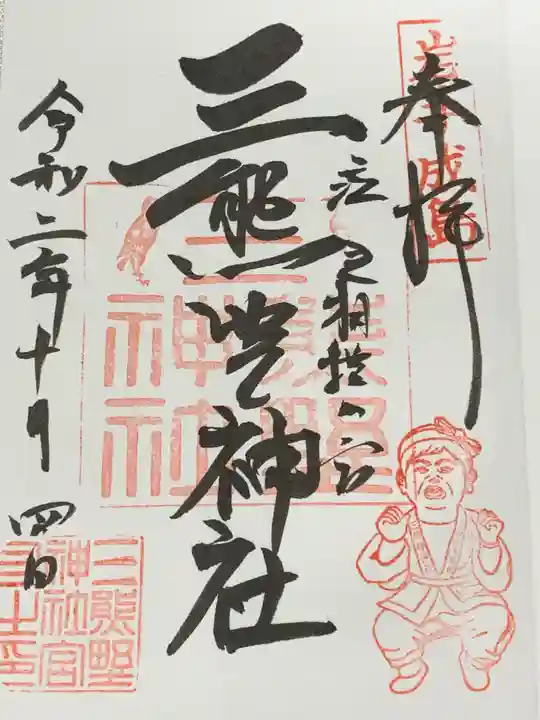 奉拝
成島
泣き相撲の宮
三熊野神社
令和二年十月四日
三熊野神社
三熊野
神社宮
司之印